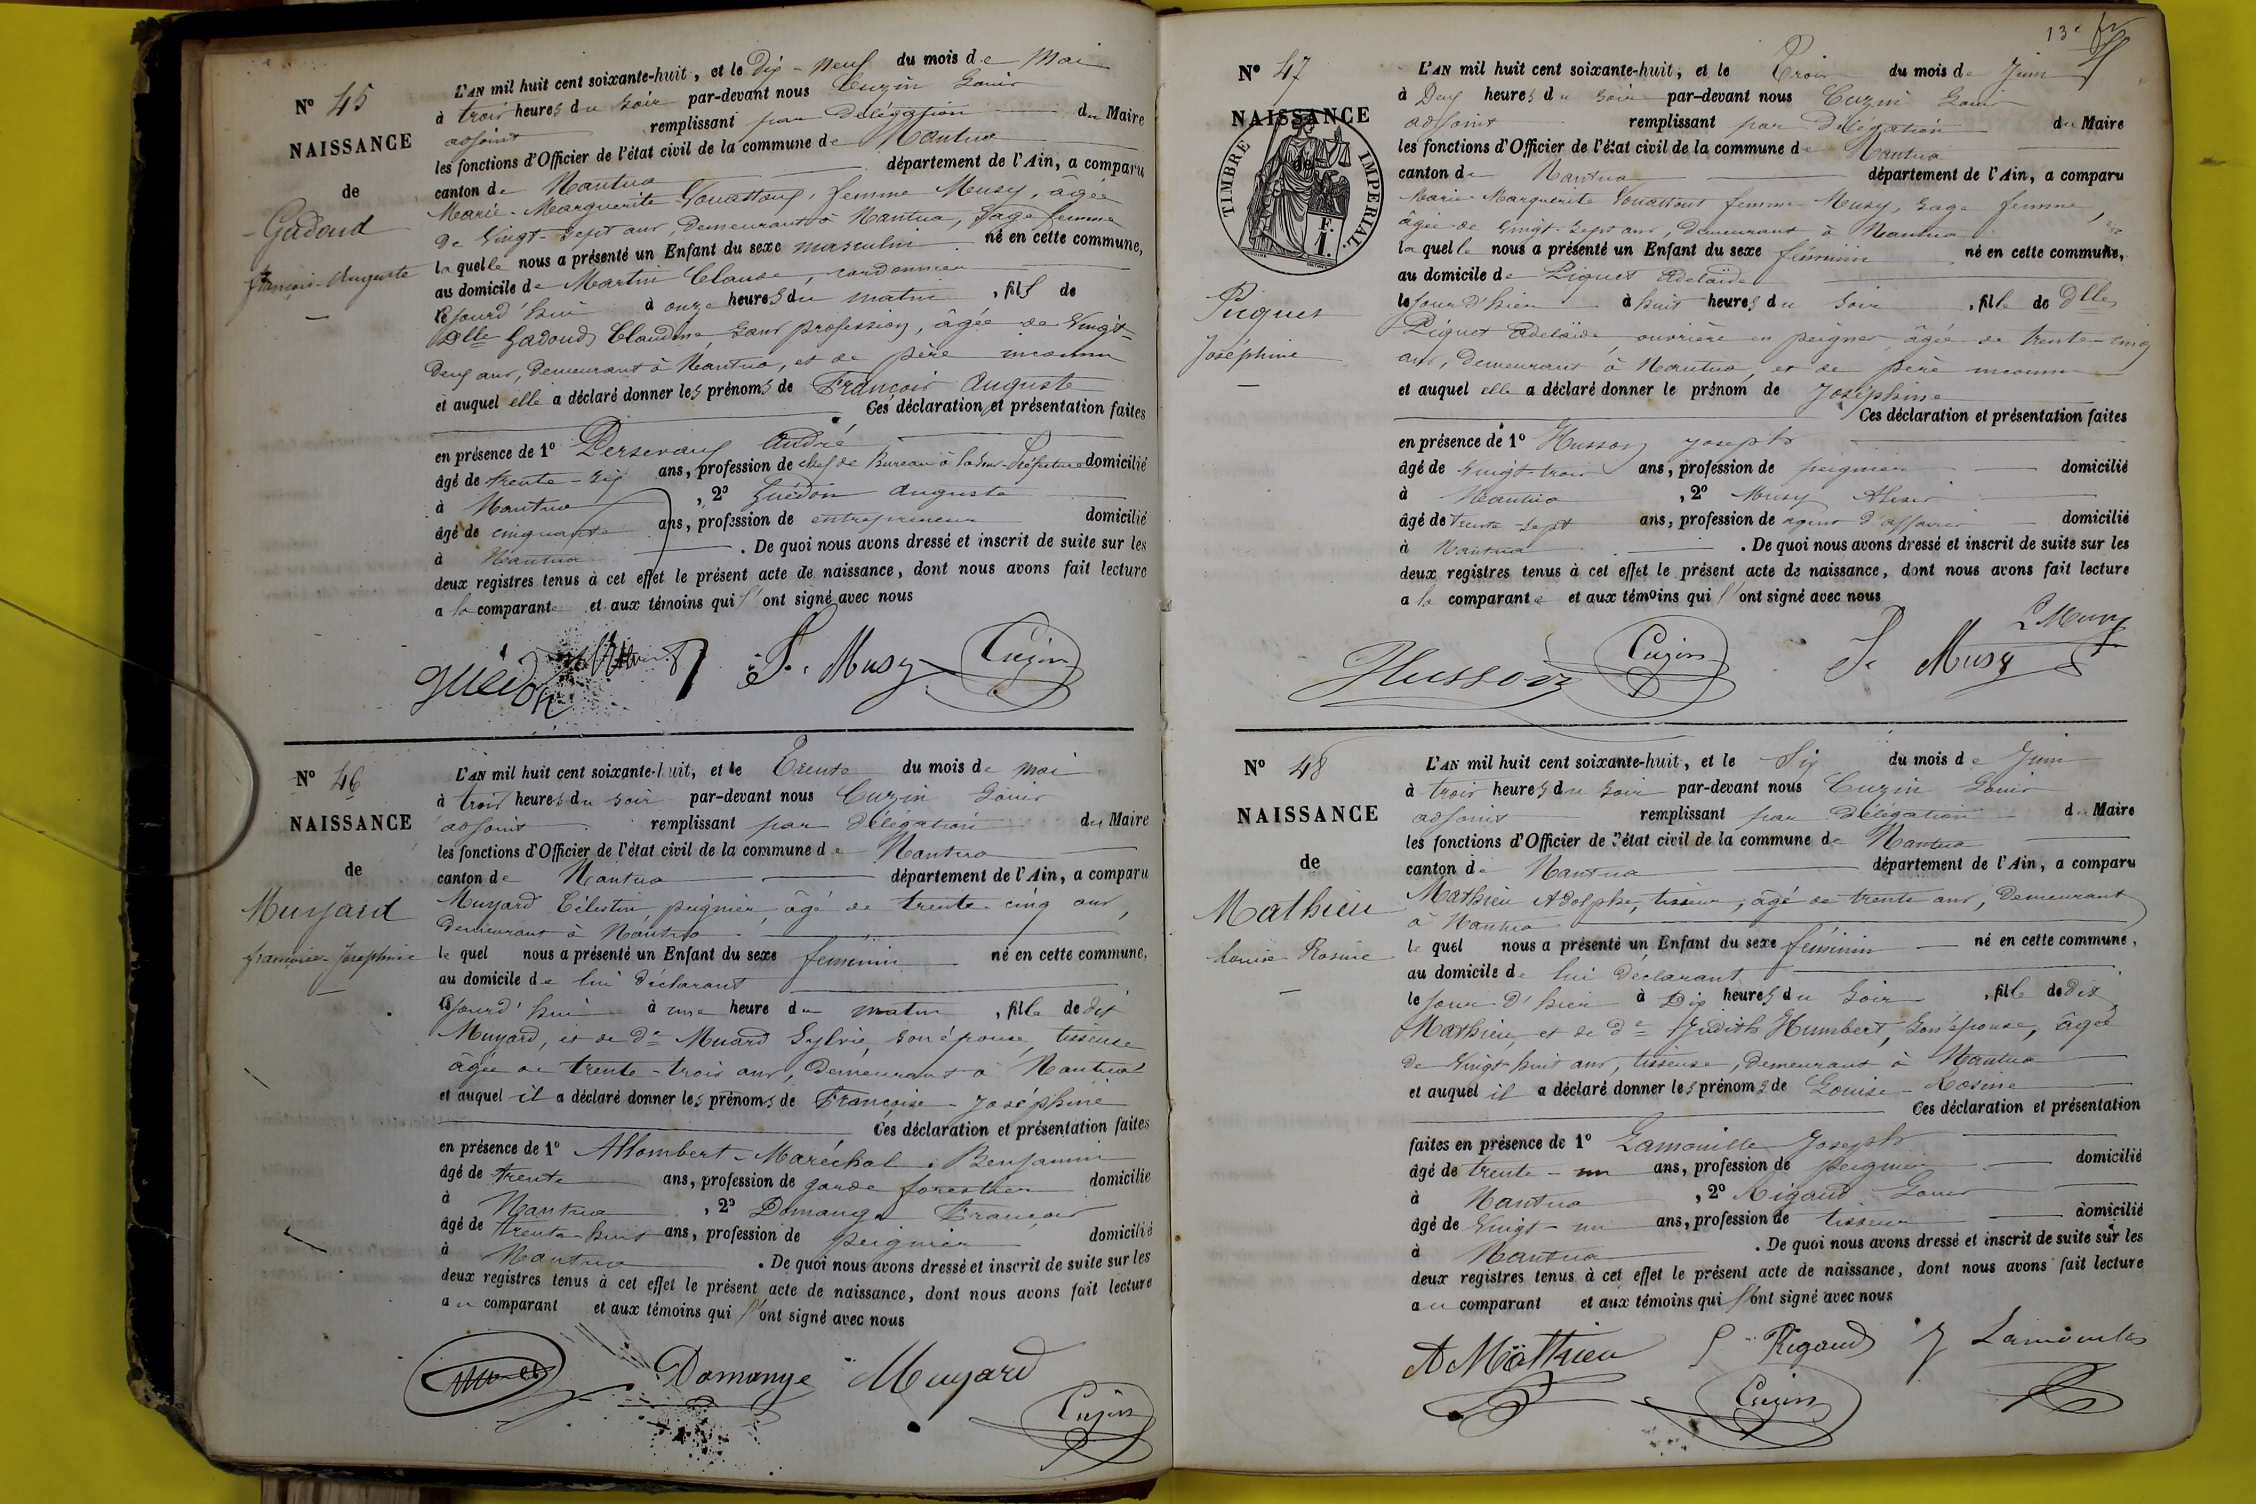 N° 45
NAISSANCE
de
Gadoud
François-Auguste
L'AN mil huit cent soixante-huit, et le Dix-Neuf du mois de Mai
à trois heures du soir par-devant nous Cuzin Louis
adjoint remplissant par Délégation du Maire
les fonctions d'Officier de l'état civil de la commune de Nantua
canton de Nantua département de l'Ain, a comparu
Marie-Marguerite femme Musy, âgée
de Vingt-sept ans, demeurant à Nantua, sage femme
laquelle nous a présenté un Enfant du sexe masculin né en cette commune,
au domicile de Martin Claude, cordonnier
cejourd'hui à onze heures du matin, fils de
Dlle Gadoud Claudine, sans profession, âgée de Vingt-
Deux ans, demeurant à Nantua, et de père inconnu
et auquel elle a déclaré donner les prénoms de François Auguste
Ces déclaration et présentation faites
en présence de 1° André
âgé de trente-six ans, profession de chef de Bureau à la Sous-Préfecture domicilié
à Nantua, 2° Guédon Auguste
âgé de cinquante ans, profession de entrepreneur domicilié
à Nantua. De quoi nous avons dressé et inscrit de suite sur les
deux registres tenus à cet effet le présent acte de naissance, dont nous avons fait lecture
a la comparante et aux témoins qui l'ont signé avec nous
Guédon F. Musy Cuzin
N° 46
NAISSANCE
de
Muyard
françoise-Joséphine
L'AN mil huit cent soixante-huit, et le Trente du mois de mai
à trois heures du soir par-devant nous Cuzin Louis
adjoint remplissant par délégation du Maire
les fonctions d'Officier de l'état civil de la commune de Nantua
canton de Nantua département de l'Ain, a comparu
Muyard Célestin, peignier, âgé de trente-cinq ans,
demeurant à Nantua
lequel nous a présenté un Enfant du sexe féminin né en cette commune,
au domicile de lui déclarant
cejourd'hui à une heure du matin, fille de dit
Muyard, et de De Muard Sylvie, son épouse, tisseuse
âgée de trente-trois ans, demeurant à Nantua
et auquel il a déclaré donner les prénoms de Françoise-Joséphine
Ces déclaration et présentation faites
en présence de 1° Allombert-Maréchal Benjamin
âgé de trente ans, profession de garde forestier domicilié
à Nantua, 2° Domange François
âgé de trente-huit ans, profession de peignier domicilié
à Nantua. De quoi nous avons dressé et inscrit de suite sur les
deux registres tenus à cet effet le présent acte de naissance, dont nous avons fait lecture
au comparant et aux témoins qui l'ont signé avec nous
Domange Muyard
Cuzin
13e
N° 47
NAISSANCE
de
TIMBRE IMPERIAL
F.
1.
Piquet
Joséphine
L'AN mil huit cent soixante-huit, et le Trois du mois de Juin
à Deux heures du soir par-devant nous Cuzin Louis
adjoint remplissant par Délégation du Maire
les fonctions d'Officier de l'état civil de la commune de Nantua
canton de Nantua département de l'Ain, a comparu
Marie-Marguerite femme Musy, sage femme,
âgée de vingt-sept ans, demeurant à Nantua
laquelle nous a présenté un Enfant du sexe féminin né en cette commune,
au domicile de Piquet Adelaïde
le jour d'hier à huit heures du soir, fille de Dlle
Piquet Adelaïde, ouvrière en peignes, âgée de trente-cinq
ans, demeurant à Nantua, et de père inconnu
et auquel elle a déclaré donner le prénom de Joséphine
Ces déclaration et présentation faites
en présence de 1° Husson Joseph
âgé de vingt-trois ans, profession de peignier domicilié
à Nantua, 2° Musy Alexis
âgé de trente-sept ans, profession de agent d'affaires domicilié
à Nantua. De quoi nous avons dressé et inscrit de suite sur les
deux registres tenus à cet effet le présent acte de naissance, dont nous avons fait lecture
a la comparante et aux témoins qui l'ont signé avec nous
Husson Cuzin F. Musy Musy
N° 48
NAISSANCE
de
Mathieu
Louise-Rosine
L'AN mil huit cent soixante-huit, et le Six du mois de Juin
à trois heures du soir par-devant nous Cuzin Louis
adjoint remplissant par délégation du Maire
les fonctions d'Officier de l'état civil de la commune de Nantua
canton de Nantua département de l'Ain, a comparu
Mathieu Adolphe, tisseur, âgé de trente ans, demeurant
à Nantua
lequel nous a présenté un Enfant du sexe féminin né en cette commune,
au domicile de lui déclarant
le jour d'hier à Dix heures du soir, fille de dit
Mathieu, et de De Judith Humbert, son épouse, âgée
de vingt-huit ans, tisseuse, demeurant à Nantua
et auquel il a déclaré donner les prénoms de Louise-Rosine
Ces déclaration et présentation
faites en présence de 1° Lamouille Joseph
âgé de trente-un ans, profession de peignier domicilié
à Nantua, 2° Rigaud Louis
âgé de vingt-un ans, profession de tisseur domicilié
à Nantua. De quoi nous avons dressé et inscrit de suite sur les
deux registres tenus à cet effet le présent acte de naissance, dont nous avons fait lecture
au comparant et aux témoins qui l'ont signé avec nous
A Mathieu L Rigaud J Lamouille
Cuzin